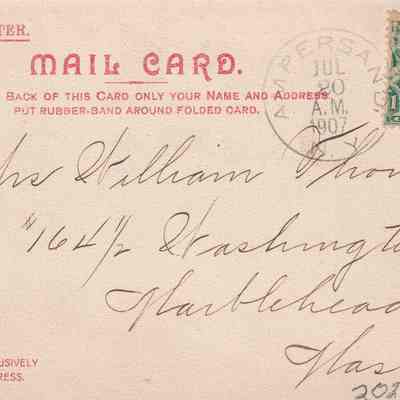 TER.
MAIL CARD.
BACK OF THIS CARD ONLY YOUR NAME AND ADDRESS.
PUT RUBBER-BAND AROUND FOLDED CARD.
AMPERSAND
JUL
20
A.M.
1907
N.Y.
1
rs William Thom
#164½ Washingt
Marblehead
Mas
USIVELY
RESS.
202